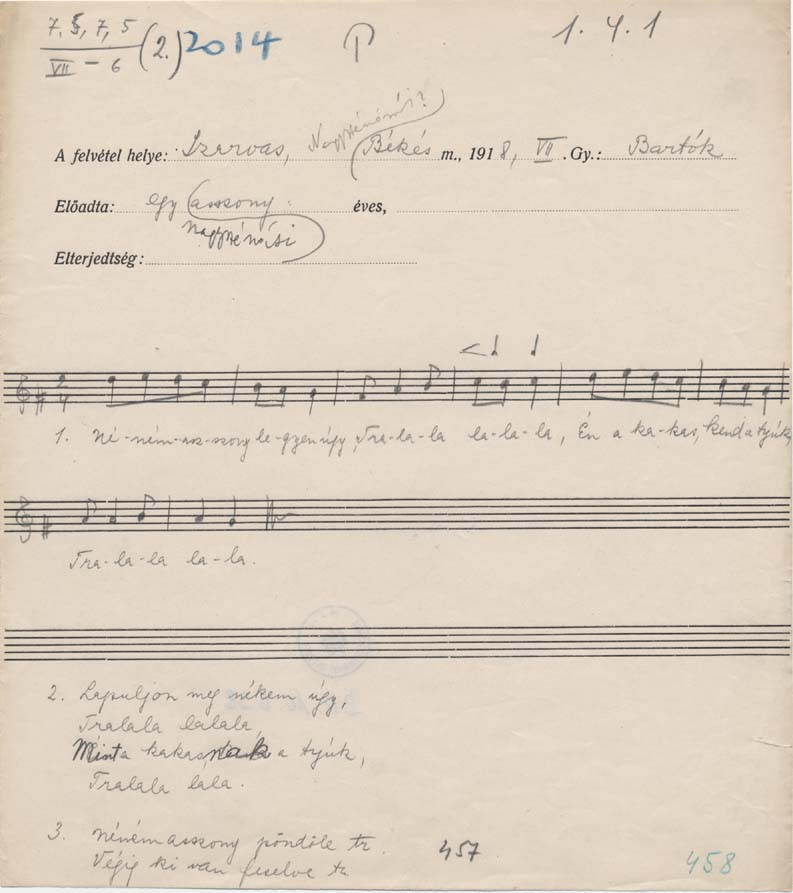 7, 5, 7, 5 (2.) 2014 P 1.4.1
VII – 6
A felvétel helye: Szarvas, (Békés m., 1918, VII. Gy.: Bartók
Előadta: egy (asszony. éves,
nagyszénási)
Elterjedtség:
2
4
1. Né-ném-asz-szony le-gyen úgy, Tra-la-la la-la-la, Én a ka-kas, kend a tyúk,
Tra-la-la la-la.
2. Lapuljon meg nékem úgy,
Tralala lalala,
Mint a kakasnak a tyúk,
Tralala lala.
3. Néném asszony pöndöle tr.
457
Végig ki van feselve tr.
458